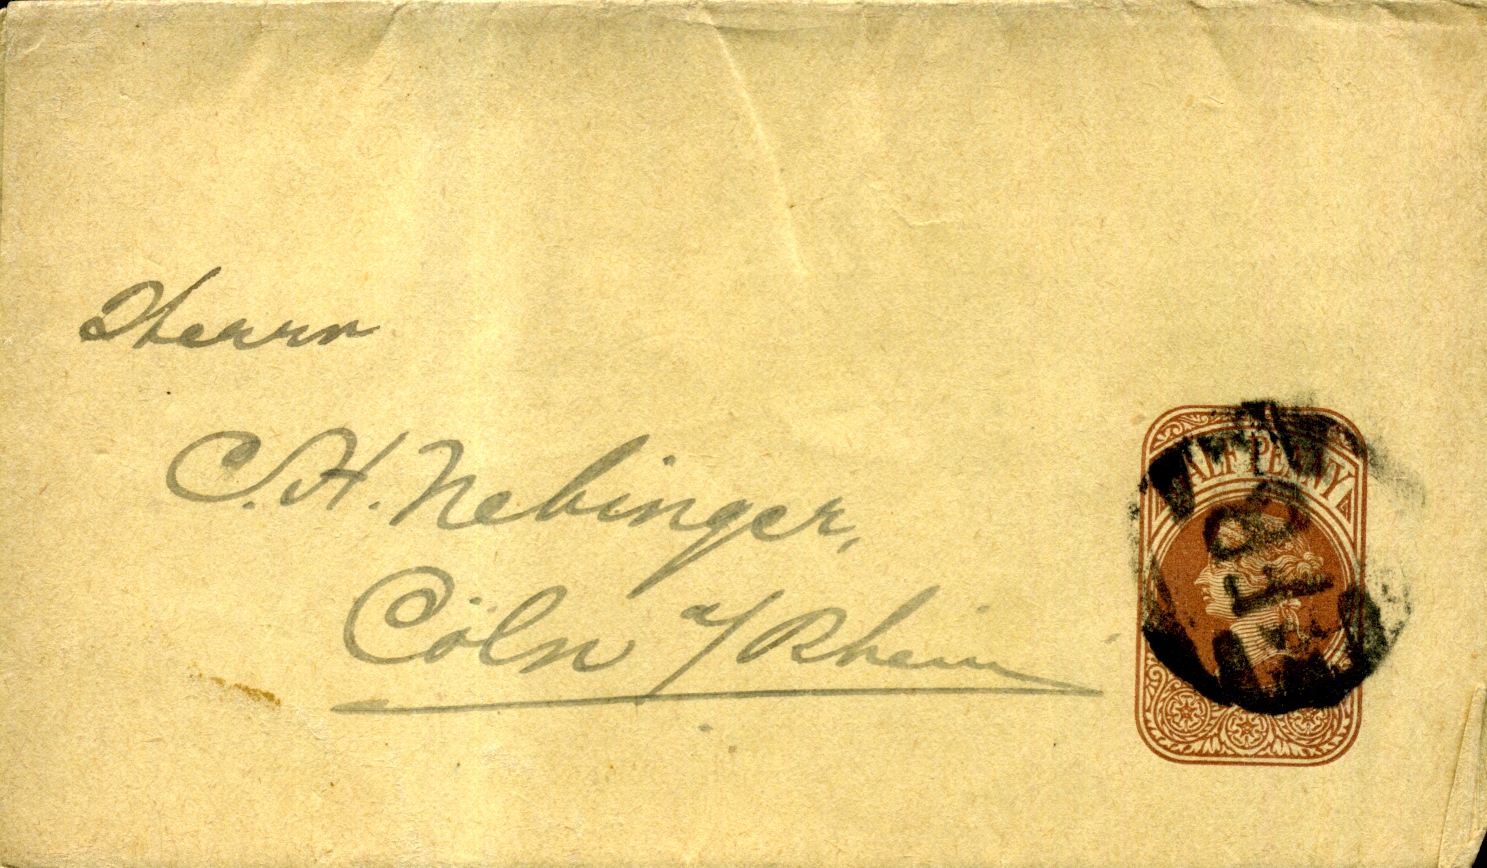 Herrn
C. H. Nebinger,
Cöln a/Rhein
HALF PENNY